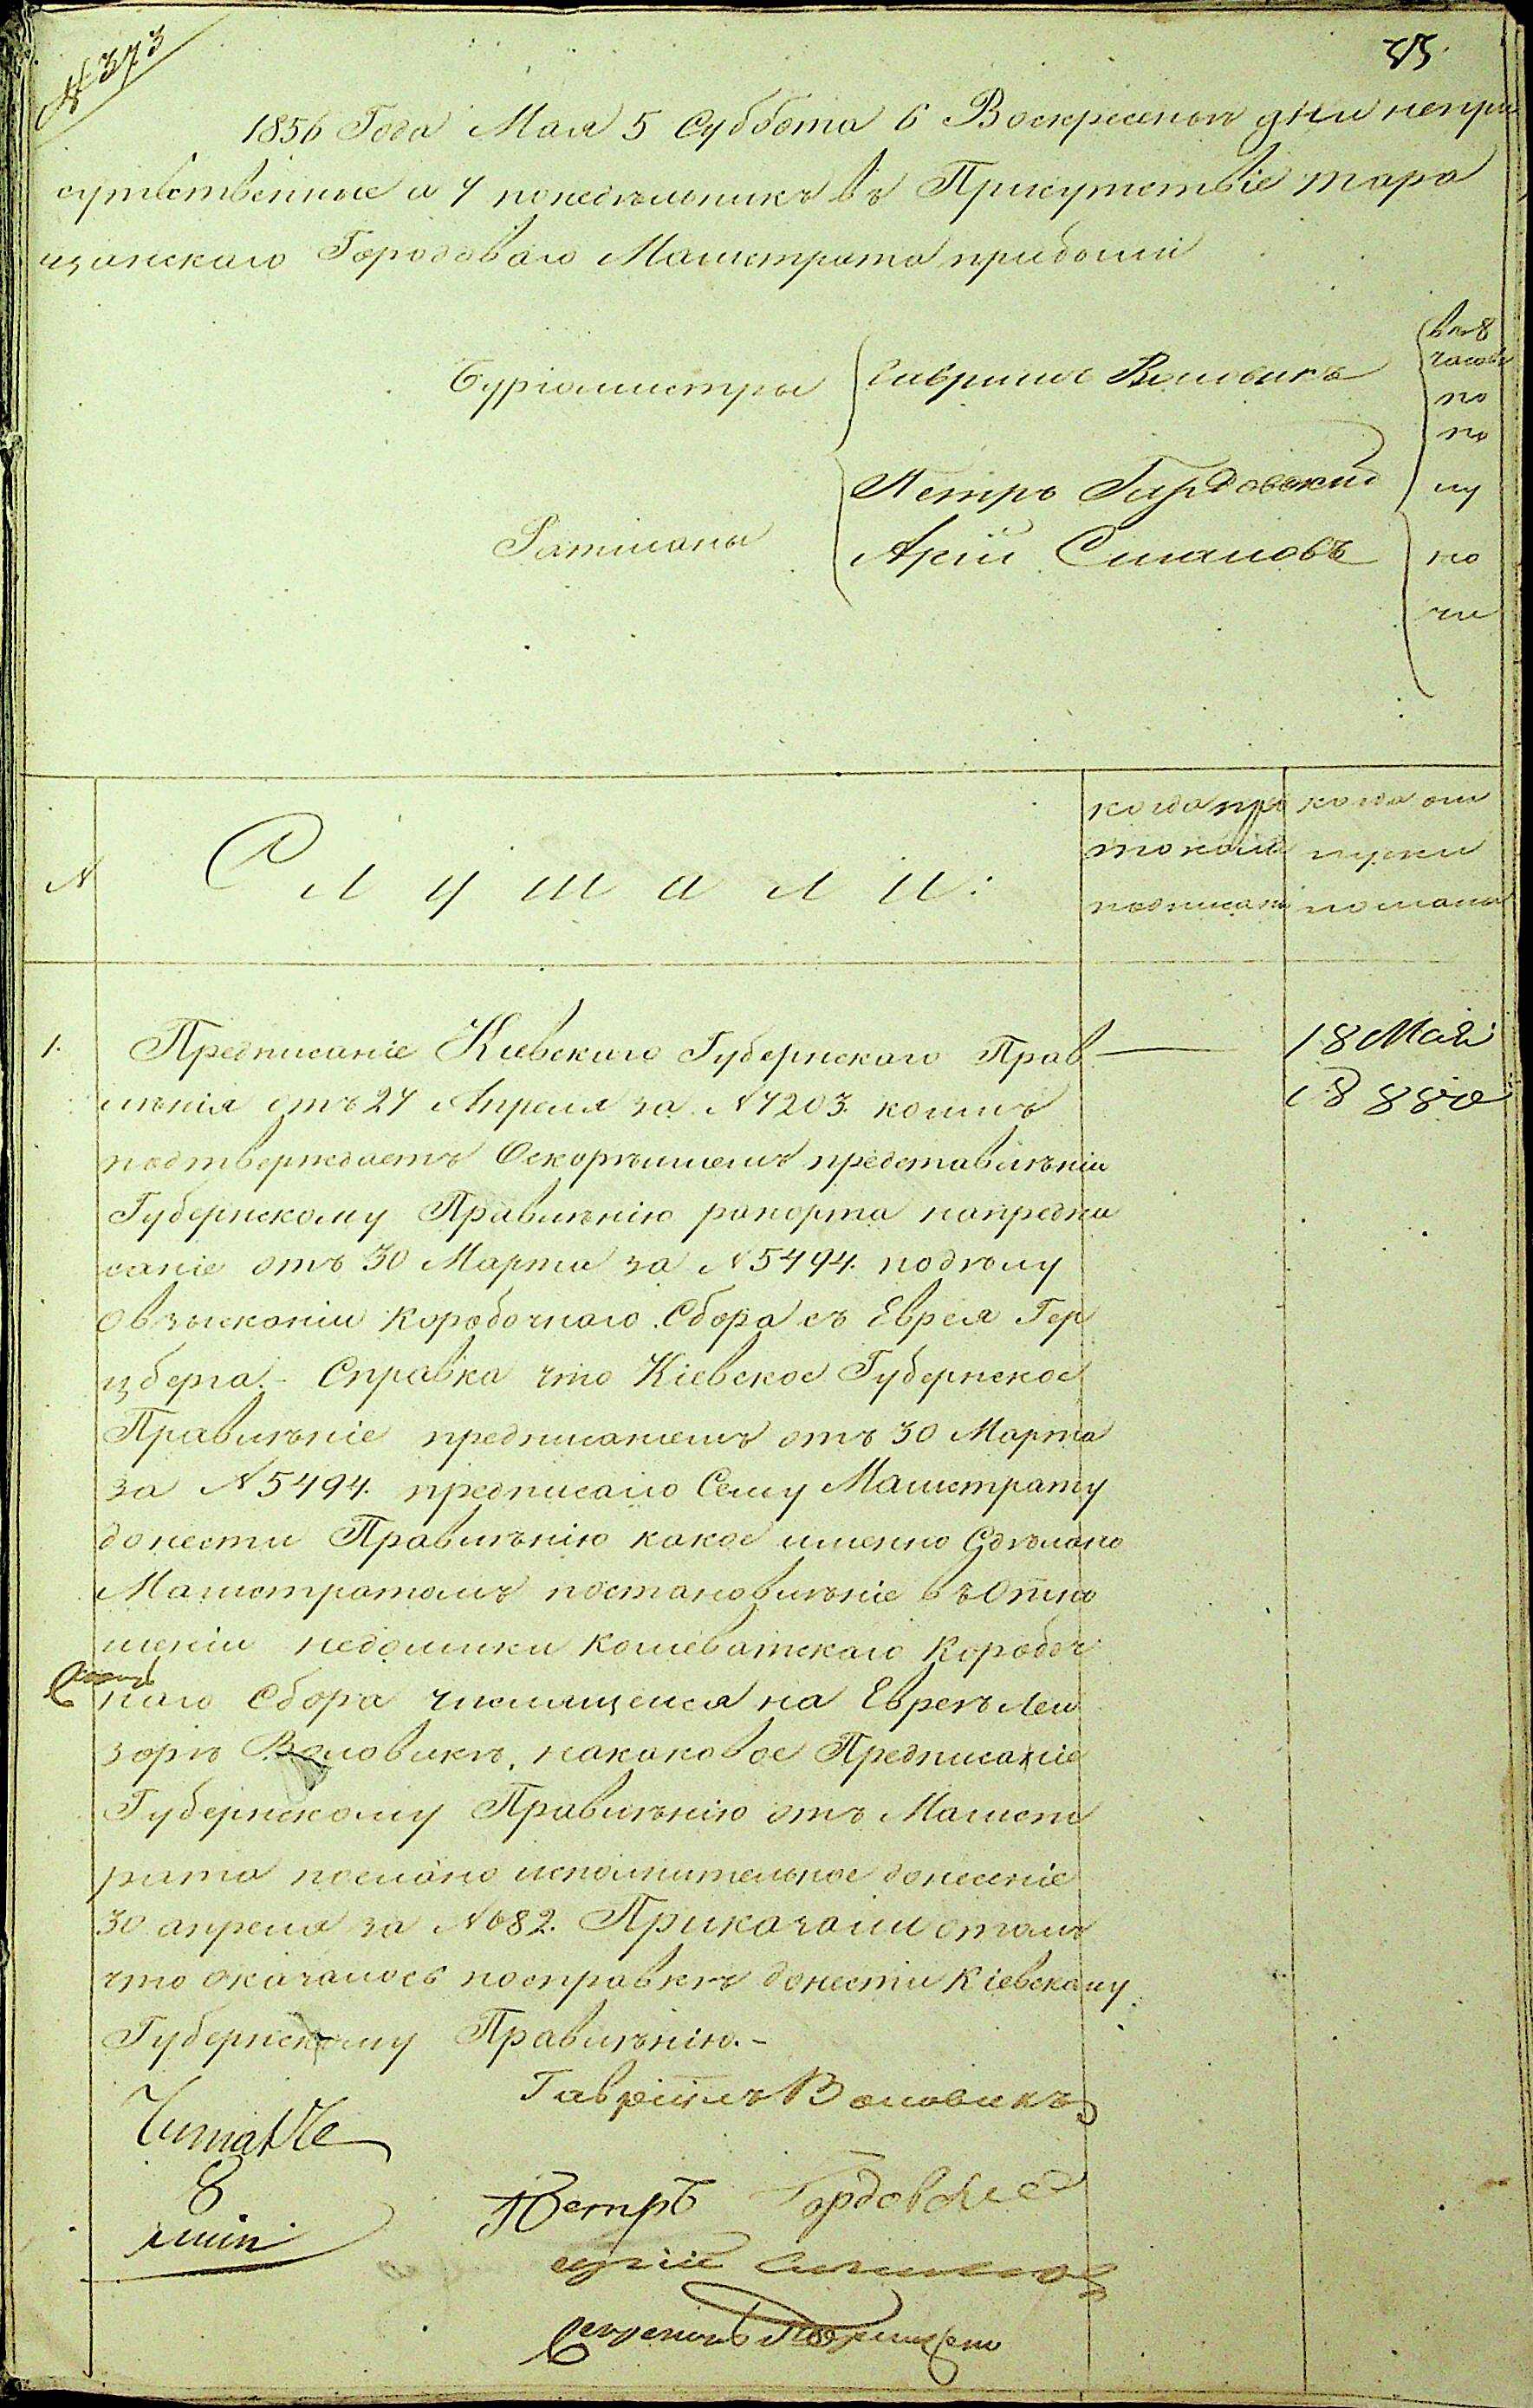 № 373
1856 Года Мая 5 Суббота 6 Воскресенье дни непри
сутственные а 7 понедельникъ въ Присутствіе Тара
щанскаго Городоваго Магистрата прибыли
Бургомистры
Гавриилъ Воловикъ
въ 8
часовъ
по
по
лу
но
чи
Петръ Гордовскій
Ратманы
№
Слушали:
когда про
токолъ
подписанъ
когда от
пуски
посланы
1.
Предписаніе Кіевскаго Губернскаго Прав
ленія отъ 27 Апреля за №7203. коимъ
подтверждаетъ Оскорѣйшемъ представленіи
Губернскому Правленію рапорта напредпи
саніе отъ 30 Марта за №5494. подѣлу
овзысканіи Коробочнаго Сбора съ Еврея Гер
цберга. – Справка что Кіевское Губернское
Правленіе предписаніемъ отъ 30 Марта
за №5494. предписало Сему Магистрату
донести Правленію какое именно Сдѣлано
Магистратомъ постановленіе въ Отно
шеніи недоимки Кошеватскаго Коробоч
наго Сбора числящейся на Евреѣ Лей
зорѣ Воловикѣ, накаковое Предписаніе
Губернскому Правленію отъ Магист
рата послано исполнительное донесеніе
30 апреля за №682. Приказали отомъ
что оказалось посправкѣ донести Кіевскому
Губернскому Правленію. –
18 Мая
Гавріилъ Воловикъ
Петръ Гордовскій